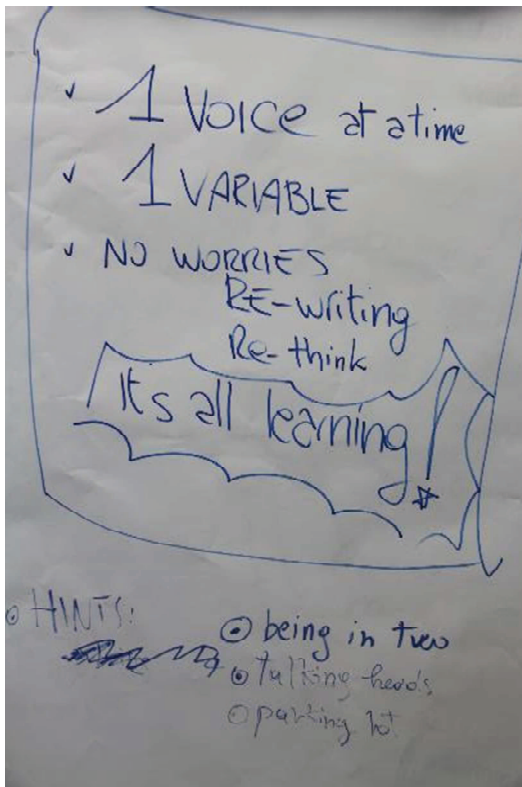 ✓ 1 VOICE at a time
✓ 1 VARIABLE
✓ NO WORRIES
RE-writing
Re-think
It's all learning!
HINTS:
being in two
talking heads
parking lot